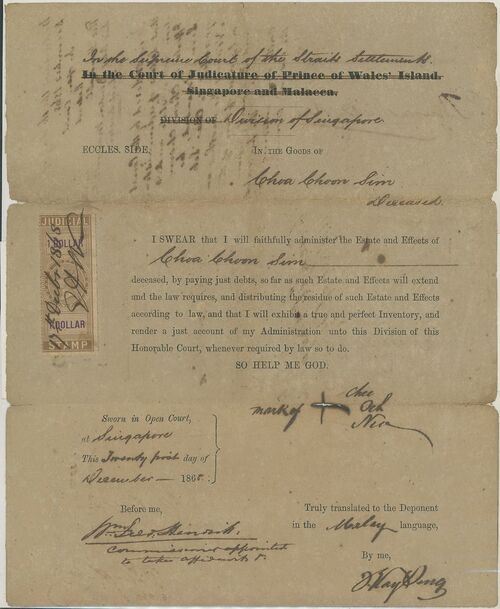 In the Supreme Court of the Straits Settlements.
In the Court of Judicature of Prince of Wales' Island,
Singapore and Malacca.
DIVISION OF Division of Singapore
ECCLES. SIDE, IN THE GOODS OF
Choa Choon Sim
Deceased
JUDICIAL
1 DOLLAR
1 DOLLAR
STAMP
I SWEAR that I will faithfully administer the Estate and Effects of
Choa Choon Sim
deceased, by paying just debts, so far as such Estate and Effects will extend
and the law requires, and distributing the residue of such Estate and Effects
according to law, and that I will exhibit a true and perfect Inventory, and
render a just account of my Administration unto this Division of this
Honorable Court, whenever required by law so to do.
SO HELP ME GOD.
mark of
Och
Sworn in Open Court,
at Singapore
This Twenty first day of
December 186
Before me,
Commissioner appointed
to take affidavits
Truly translated to the Deponent
in the Malay language,
By me,